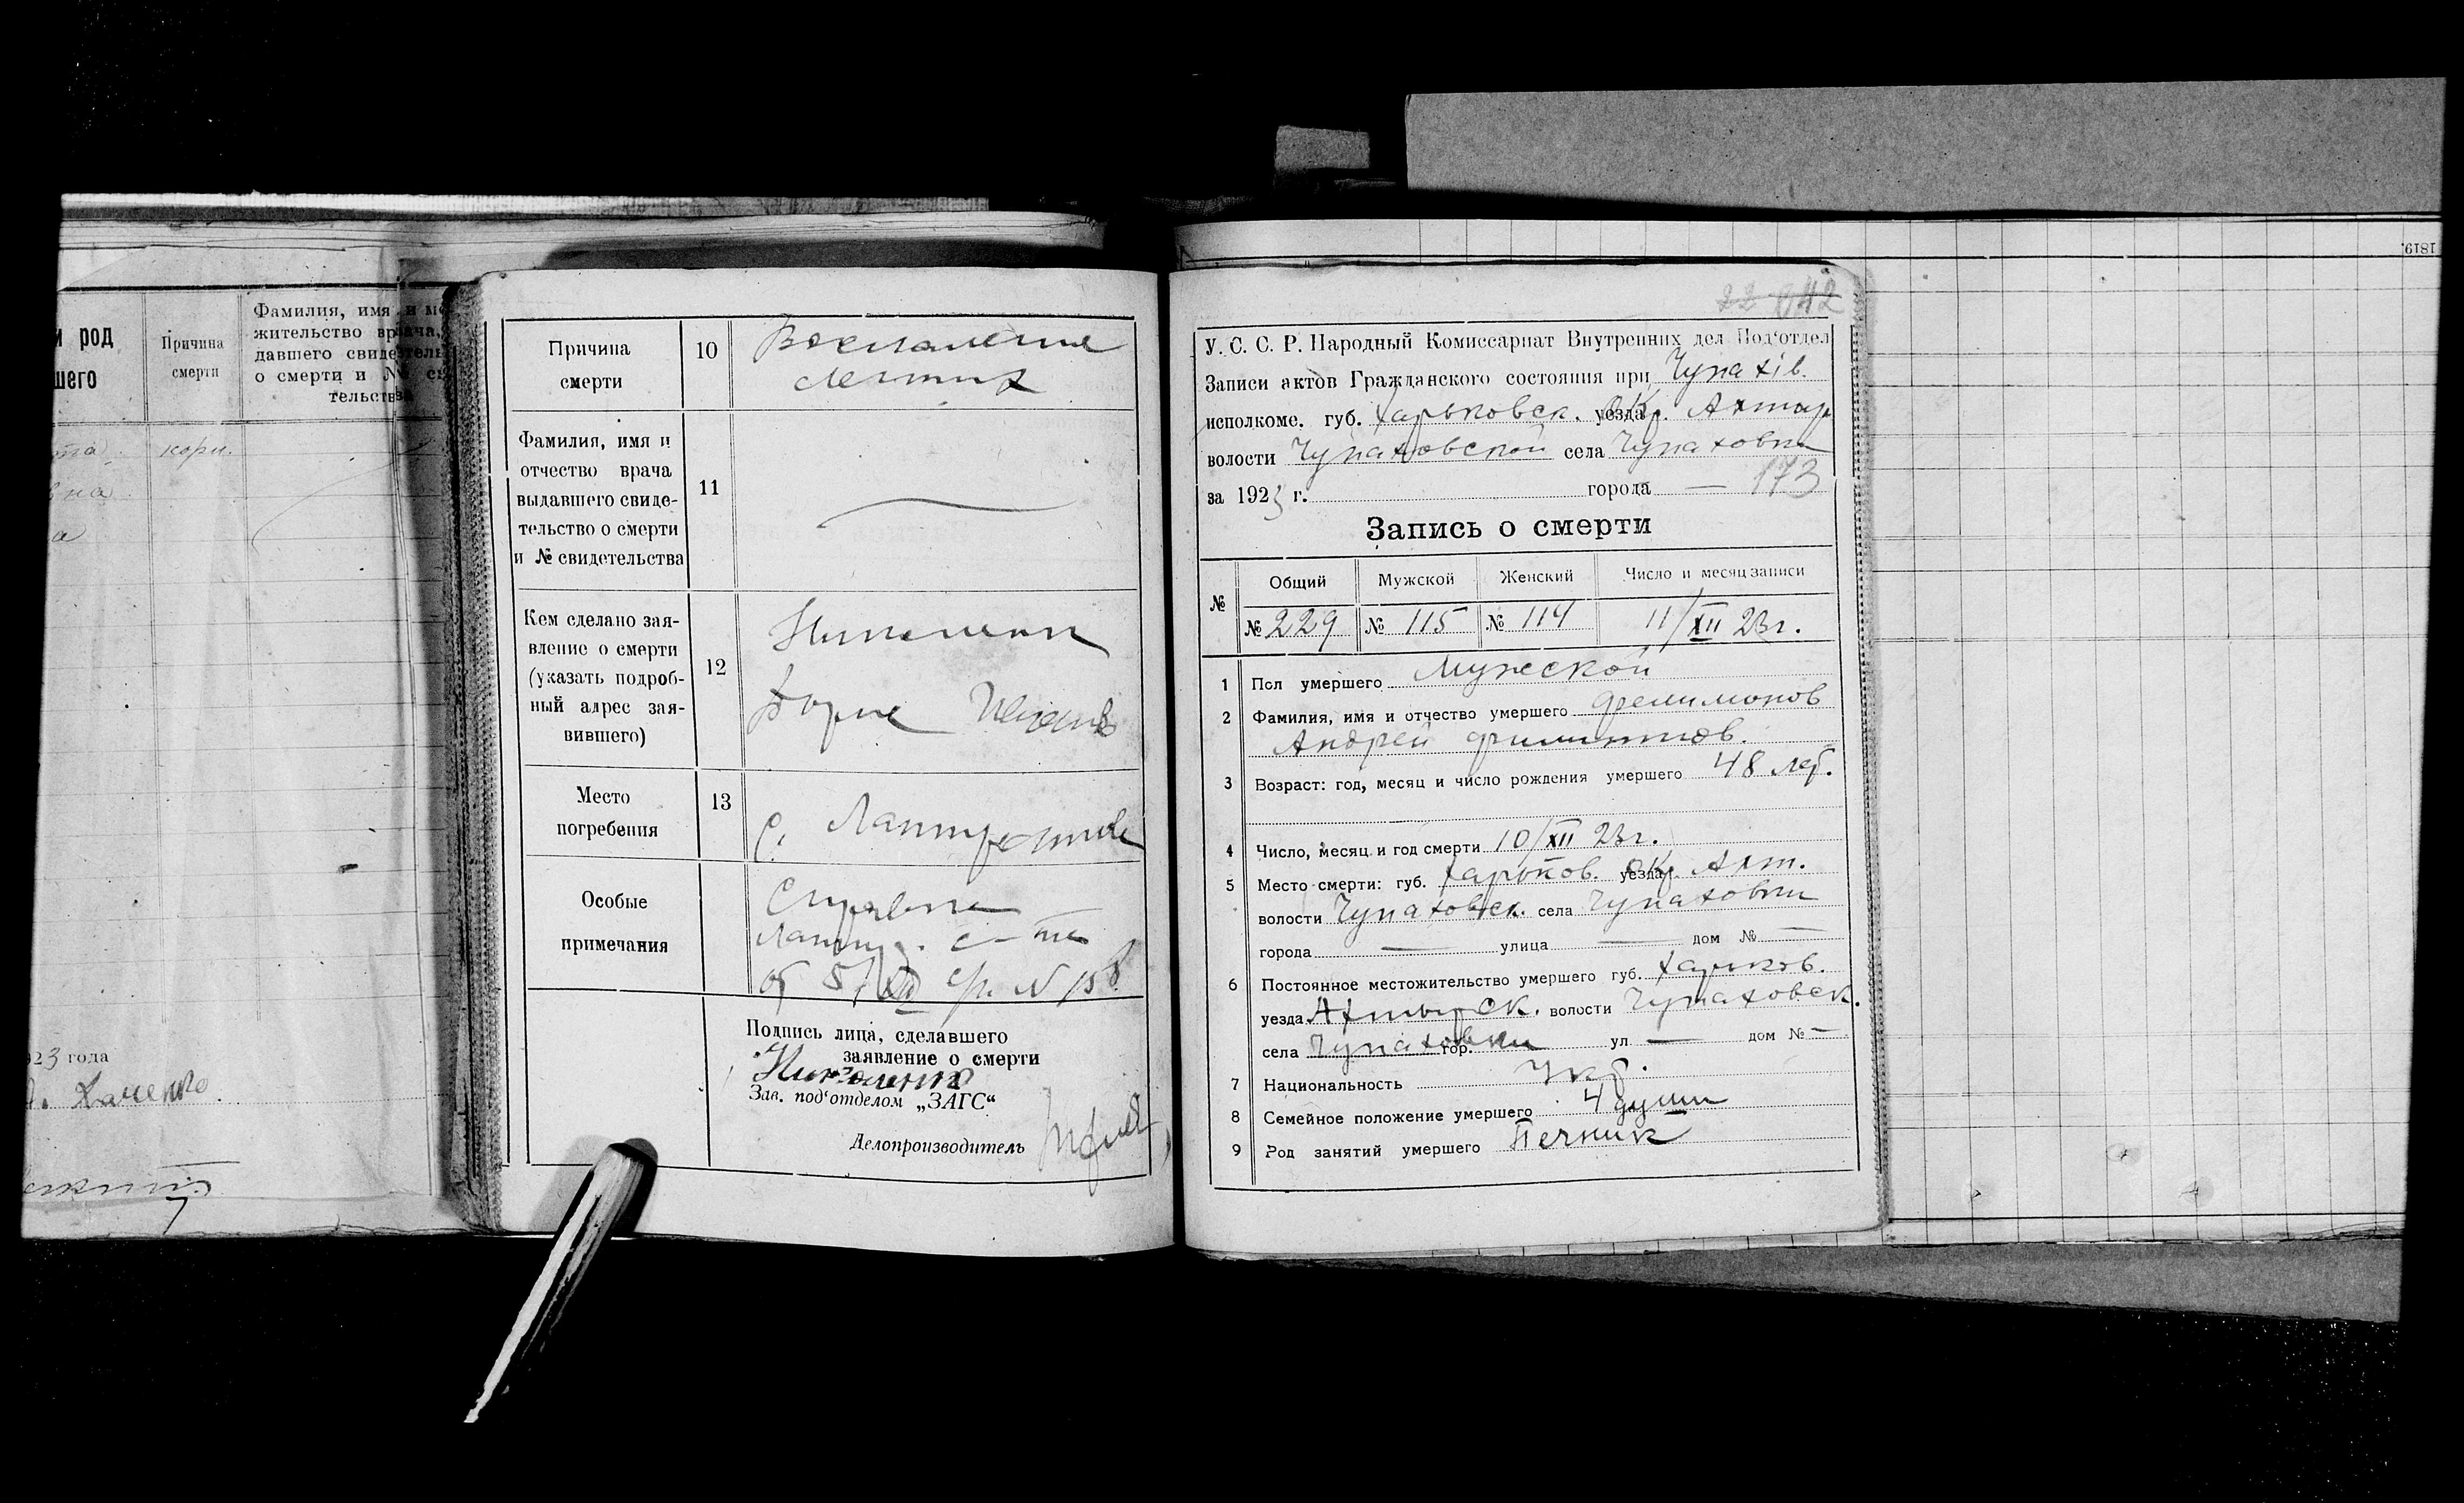 и род
шего
Причина
смерти
Фамилия, имя и м
жительство врача,
давшего свидетель
о смерти и №
тельства
кори.
на
а
1923 года
Хаченко
Причина
смерти
10
Воспаление
легких
Фамилия, имя и
отчество врача
выдавшего свиде-
тельство о смерти
и № свидетельства
11
Кем сделано зая-
вление о смерти
(указать подроб-
ный адрес зая-
вившего)
12
Николаенко
Место
погребения
13
с.
Особые
примечания
Справка
от 5/XII
Подпись лица, сделавшего
заявление о смерти
Николенко
Зав. под'отделом „ЗАГС“
Делопроизводитель
22 642
У. С. С. Р. Народный Комиссариат Внутренних дел Под'отдел
Записи актов Гражданского состояния при Чупахів.
исполкоме. губ. Харьковск. уезда Окр. Ахтыр
волости Чупаховской села Чупаховки
за 1923 г. города — 173
Запись о смерти
№ Общий Мужской Женский Число и месяц записи
№ 229 № 115 № 114 11/XII 23г.
1 Пол умершего Мужеской
2 Фамилия, имя и отчество умершего Филимонов
Андрей Филиппов.
3 Возраст: год, месяц и число рождения умершего 48 лет.
4 Число, месяц и год смерти 10/XII 23г.
5 Место смерти: губ. Харьков. уезда Окр Ахт.
волости Чупаховск. села Чупаховки
города — улица — дом № —
6 Постоянное местожительство умершего губ. Харьков.
уезда Ахтырск. волости Чупаховск.
села Чупаховки гор. ул — дом № —
7 Национальность Укр.
8 Семейное положение умершего 4 души
9 Род занятий умершего Печник
1819.